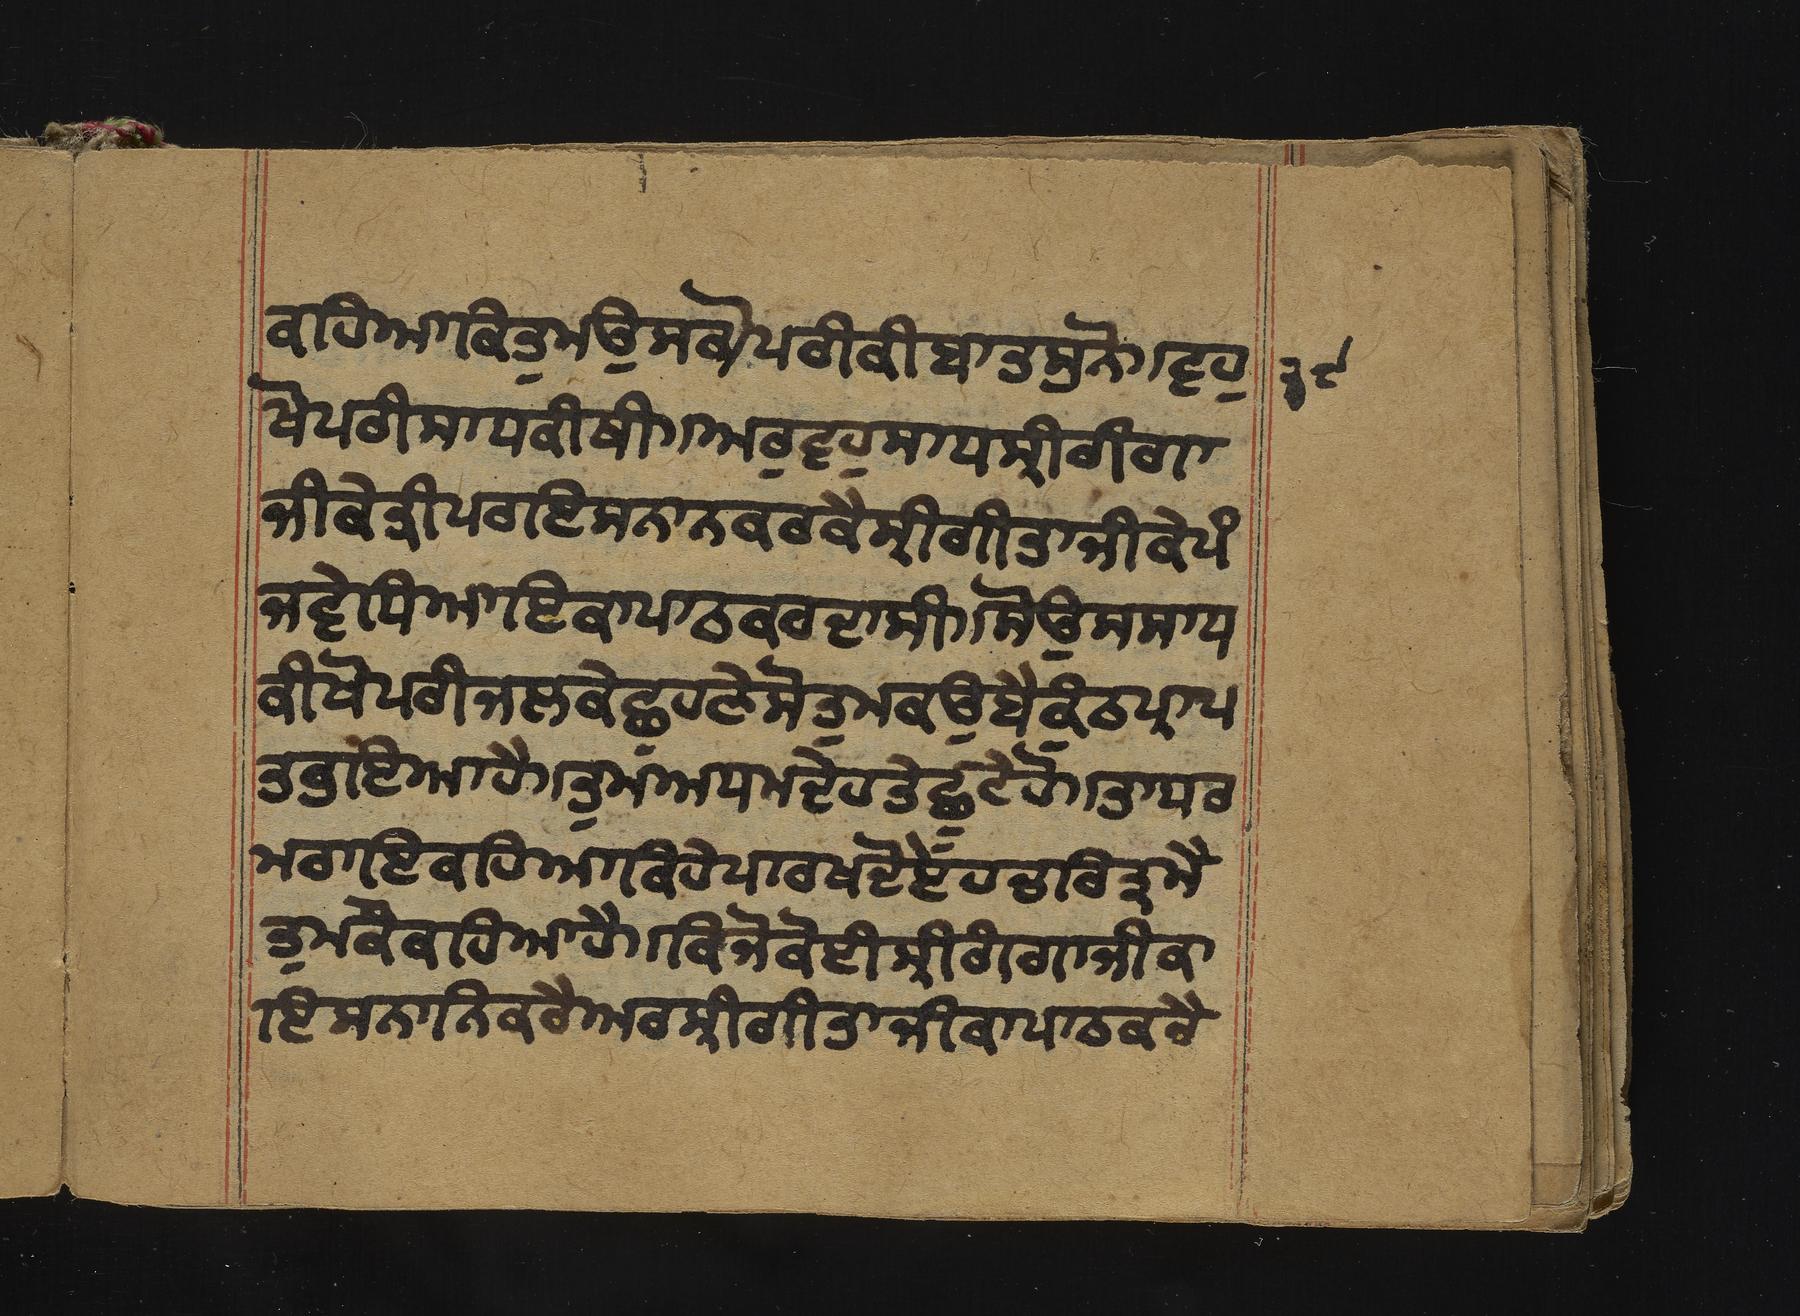 ਕਹਿਆਕਿਤੁਮਉਸਖੋਪਰੀਕੀਬਾਤਸੁਨੋ।ਵ੍ਹਹੁ ੩੯
ਖੋਪਰੀਸਾਧਕੀਥੀ।ਅਰੁਵ੍ਹਹੁਸਾਧਸ੍ਰੀਗੰਗਾ
ਜੀਕੇਤੀਪਰਇਸਨਾਨਕਰਕੈਸ੍ਰੀਗੀਤਾਜੀਕੇਪੰ
ਜਵੇਧਿਆਇਕਾਪਾਠਕਰਦਾਸੀ।ਸੋਉਸਸਾਧ
ਕੀਖੋਪਰੀਜਲਕੇਛੁਹਣੇਸੋਤੁਮਕਉਬੈਕੁੰਠਪ੍ਰਾਪ
ਤਭੁਇਆਹੈ।ਤੁਮਅਧਮਦੇਹਤੇਛੁਟੇਹੋ।ਤਾਧਰ
ਮਰਾਇਕਹਿਆਕਿਹੇਪਾਰਖਦੋਏਹਚਰਿਤ੍ਰਮੈ
ਤੁਮਕੌਕਹਿਆਹੈ।ਕਿਜੋਕੋਈਸ੍ਰੀਗੰਗਾਜੀਕਾ
ਇਸਨਾਨਿਕਰੈਅਰਸ੍ਰੀਗੀਤਾਜੀਕਾਪਾਠਕਰੈ